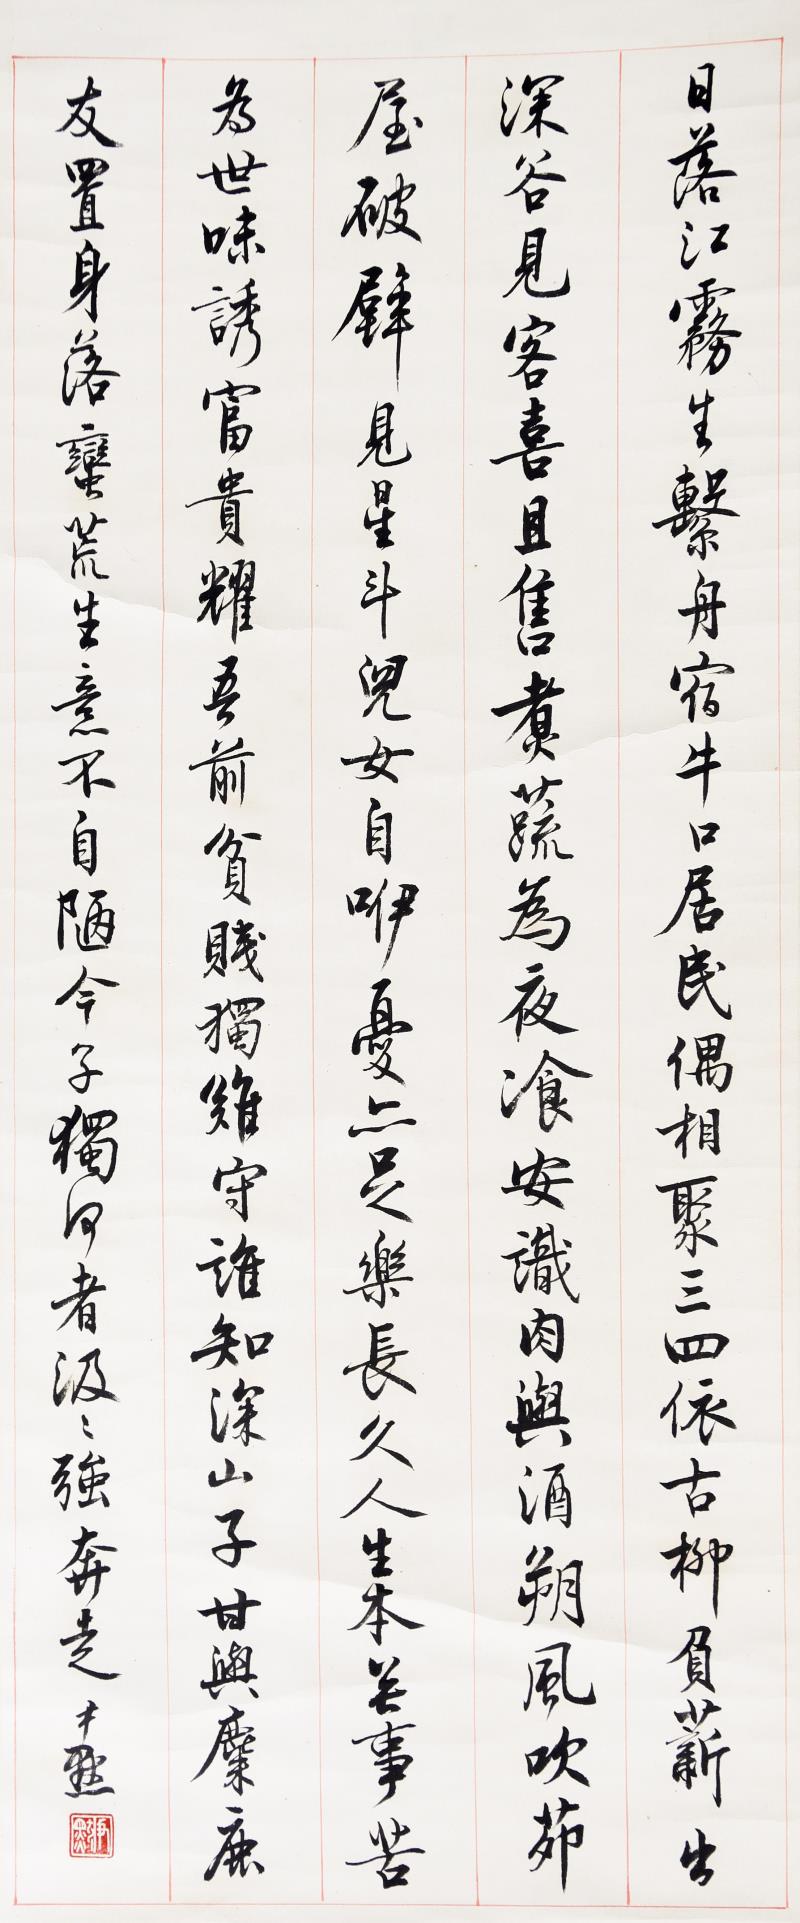 日落江霧生繫舟宿牛口居民偶相聚三四依古柳負薪出
深谷見客喜且售煑蔬為夜飡安識肉與酒朔風吹茆
屋破壁見星斗兒女自咿嚘亦足樂長久人生本無事苦
為世味誘富貴耀吾前貧賤獨難守誰知深山子甘與麋鹿
友置身落蠻荒生意不自陋今予獨何者汲〻強奔走 尹默